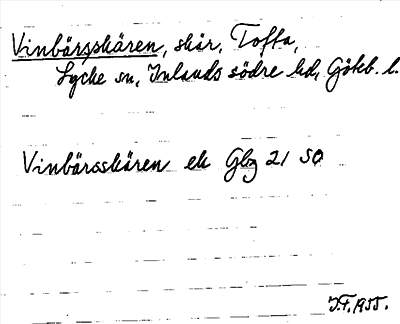 Vinbärsskären, skär, Tofta,
Lycke sn, Inlands södre hd, Göteb. l.
Vinbärsskären ek Gbg 21 SO
J.F. 1955.